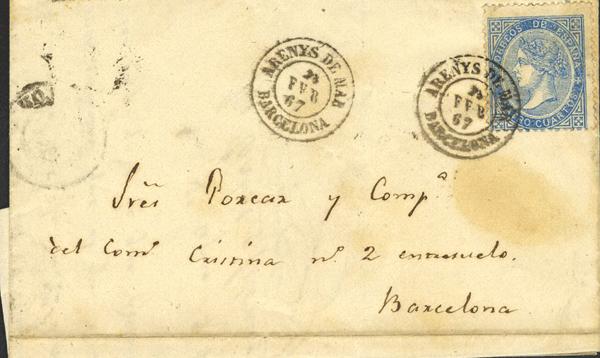 ARENYS DE MAR
FEB
67
BARCELONA
ARENYS DE MAR
FEB
67
BARCELONA
CORREOS DE ESPAÑA
CUATRO CUARTOS
Sres Porcar y Compª
del Comº Cristina nº 2 entresuelo.
Barcelona